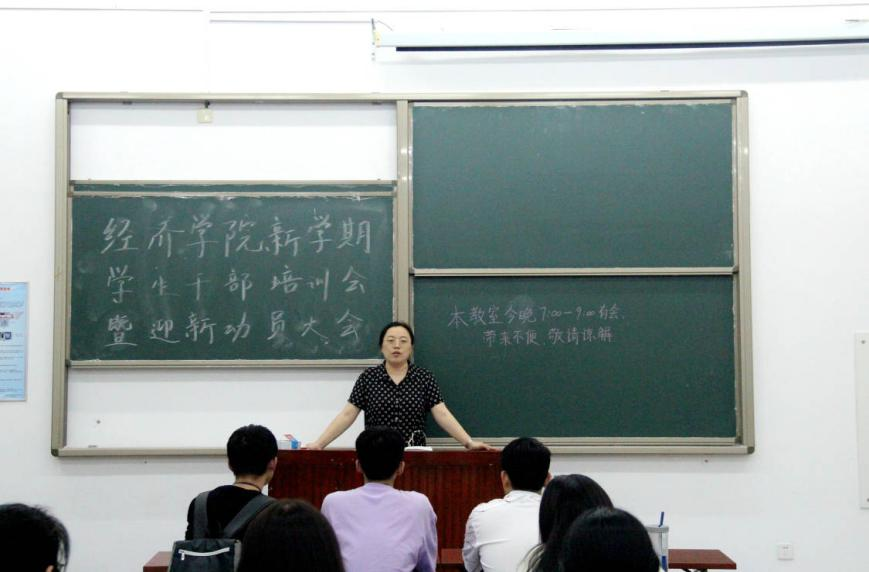 经济学院新学期
学生干部培训会
暨迎新动员大会
本教室今晚7:00-9:00有会,
带来不便,敬请谅解